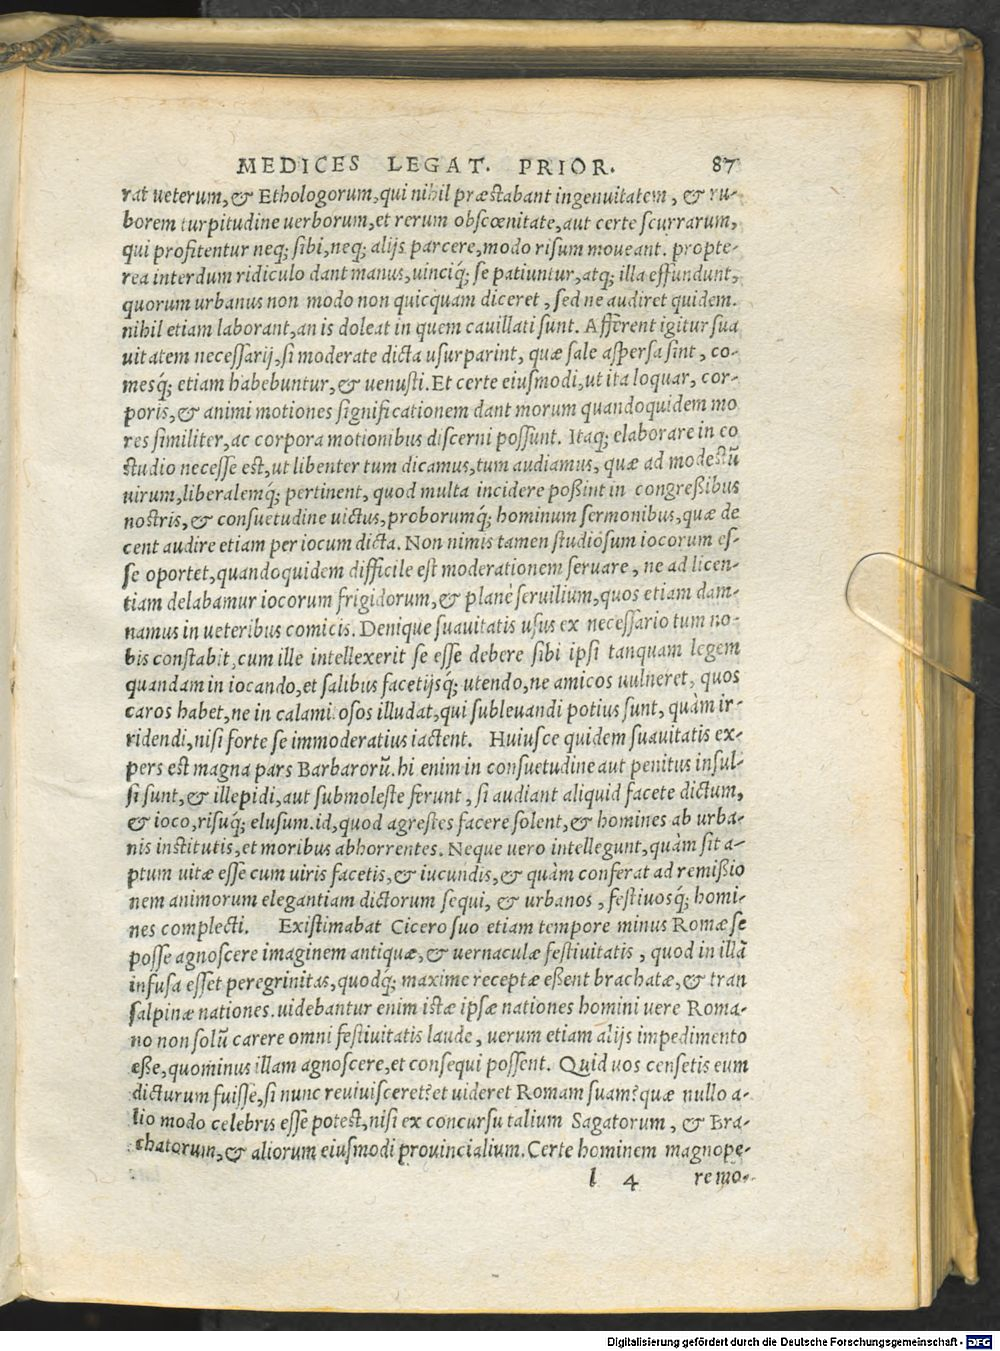 MEDICES LEGAT. PRIOR. 87
rat ueterum, & Ethologorum, qui nihil præstabant ingenuitatem, & ru-
borem turpitudine uerborum, et rerum obscœnitate, aut certe scurrarum,
qui profitentur neq; sibi, neq; alijs parcere, modo risum moueant. propte-
rea interdum ridiculo dant manus, uinciq́; se patiuntur, atq; illa effundunt,
quorum urbanus non modo non quicquam diceret, sed ne audiret quidem.
nihil etiam laborant, an is doleat in quem cauillati sunt. Afferent igitur sua
uitatem necessarij, si moderate dicta usurparint, quæ sale aspersa sint, co-
mesq́; etiam habebuntur, & uenusti. Et certe eiusmodi, ut ita loquar, cor-
poris, & animi motiones significationem dant morum quandoquidem mo
res similiter, ac corpora motionibus discerni possunt. Itaq; elaborare in eo
studio necesse est, ut libenter tum dicamus, tum audiamus, quæ ad modestū
uirum, liberalemq́; pertinent, quod multa incidere poßint in congreßibus
nostris, & consuetudine uictus, proborumq́; hominum sermonibus, quæ de
cent audire etiam per iocum dicta. Non nimis tamen studiosum iocorum es-
se oportet, quandoquidem difficile est moderationem seruare, ne ad licen-
tiam delabamur iocorum frigidorum, & planè seruilium, quos etiam dam-
namus in ueteribus comicis. Denique suauitatis usus ex necessario tum no-
bis constabit, cum ille intellexerit se esse debere sibi ipsi tanquam legem
quandam in iocando, et salibus facetijsq́; utendo, ne amicos uulneret, quos
caros habet, ne in calamitosos illudat, qui subleuandi potius sunt, quàm ir-
ridendi, nisi forte se immoderatius iactent. Huiusce quidem suauitatis ex-
pers est magna pars Barbarorū. hi enim in consuetudine aut penitus insul-
si sunt, & illepidi, aut submoleste ferunt, si audiant aliquid facete dictum,
& ioco, risuq́; elusum. id, quod agrestes facere solent, & homines ab urba-
nis institutis, et moribus abhorrentes. Neque uero intellegunt, quàm sit a-
ptum uitæ esse cum uiris facetis, & iucundis, & quàm conferat ad remißio
nem animorum elegantiam dictorum sequi, & urbanos, festiuosq́; homi-
nes complecti. Existimabat Cicero suo etiam tempore minus Romæ se
posse agnoscere imaginem antiquæ, & uernaculæ festiuitatis, quod in illā
infusa esset peregrinitas, quodq́; maxime receptæ eßent brachatæ, & tran
salpinæ nationes. uidebantur enim istæ ipsæ nationes homini uere Roma-
no non solū carere omni festiuitatis laude, uerum etiam alijs impedimento
eße, quominus illam agnoscere, et consequi possent. Quid uos censetis eum
dicturum fuisse, si nunc reuiuisceret? et uideret Romam suam? quæ nullo a-
lio modo celebris esse potest, nisi ex concursu talium Sagatorum, & Bra-
chatorum, & aliorum eiusmodi prouincialium. Certe hominem magnope-
l 4 re mo-
Digitalisierung gefördert durch die Deutsche Forschungsgemeinschaft - DFG